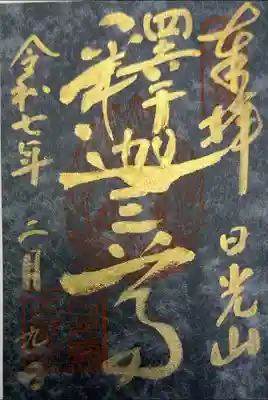 奉拝 日光山
釋迦三尊
令和七年 二月 九日